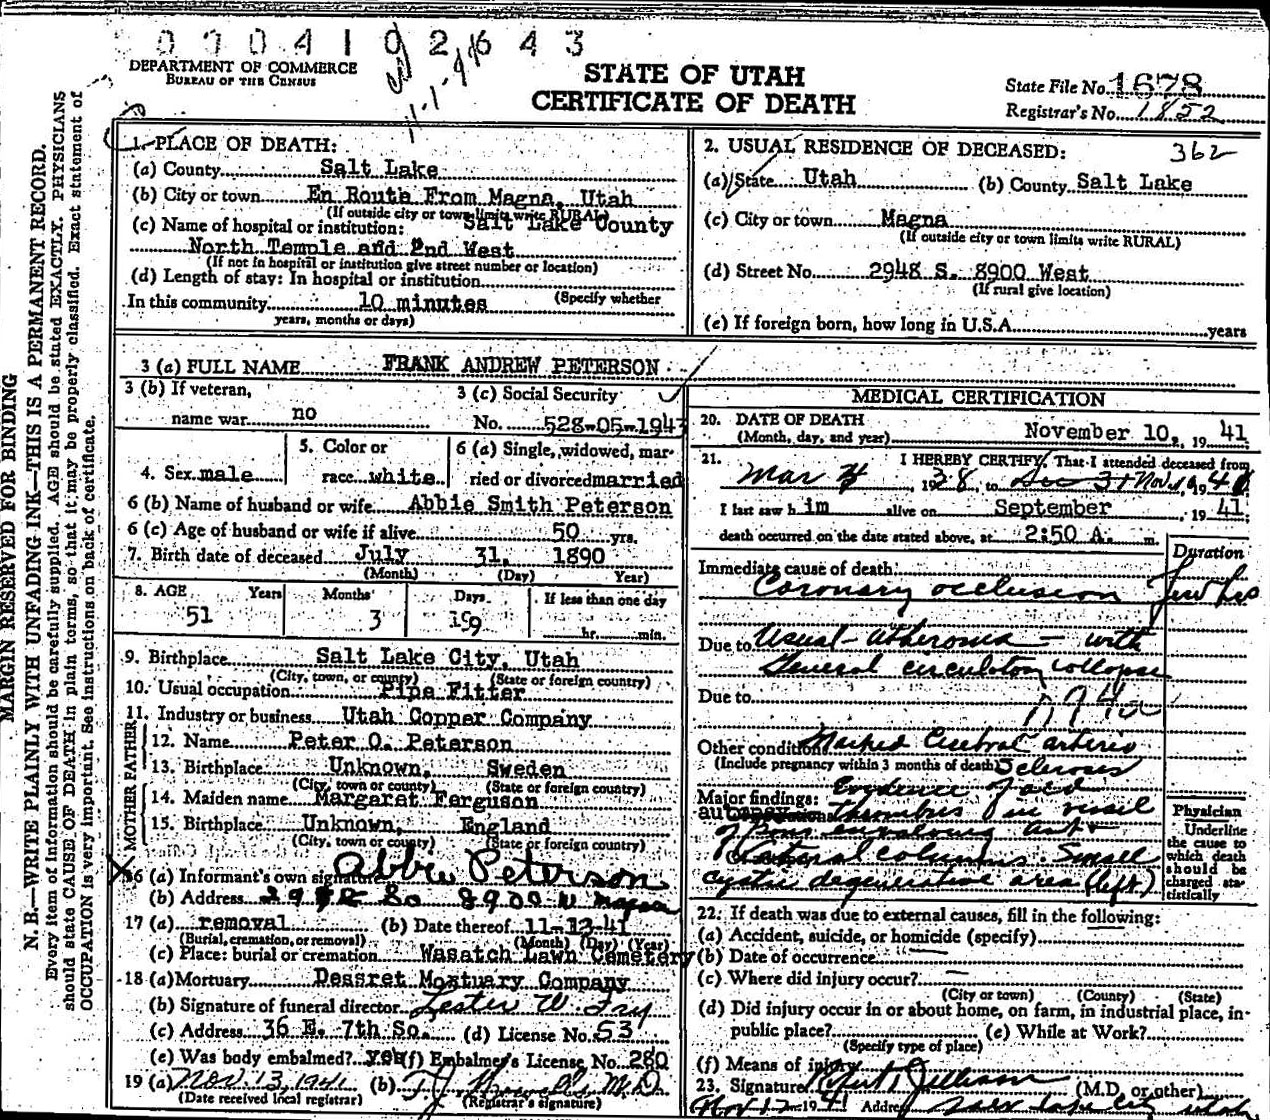 0 0 0 4 1 0 2 6 4 3
11-1-44
DEPARTMENT OF COMMERCE
BUREAU OF THE CENSUS
STATE OF UTAH
CERTIFICATE OF DEATH
State File No. 1678
Registrar's No. 1852
MARGIN RESERVED FOR BINDING
N. B.—WRITE PLAINLY WITH UNFADING INK—THIS IS A PERMANENT RECORD.
Every item of information should be carefully supplied. AGE should be stated EXACTLY. PHYSICIANS
should state CAUSE OF DEATH in plain terms, so that it may be properly classified. Exact statement of
OCCUPATION is very important. See instructions on back of certificate.
1. PLACE OF DEATH:
(a) County Salt Lake
(b) City or town En Route From Magna, Utah
(If outside city or town limits write RURAL)
(c) Name of hospital or institution: Salt Lake County
North Temple and 2nd West
(If not in hospital or institution give street number or location)
(d) Length of stay: In hospital or institution
(Specify whether
In this community 10 minutes
years, months or days)
2. USUAL RESIDENCE OF DECEASED: 362
(a) State Utah (b) County Salt Lake
(c) City or town Magna
(If outside city or town limits write RURAL)
(d) Street No. 2948 S. 8900 West
(If rural give location)
(e) If foreign born, how long in U.S.A. years
3 (a) FULL NAME FRANK ANDREW PETERSON
3 (b) If veteran,
name war no
3 (c) Social Security
No. 528-05-1943
4. Sex male
5. Color or
race white
6 (a) Single, widowed, mar-
ried or divorced married
6 (b) Name of husband or wife Abbie Smith Peterson
6 (c) Age of husband or wife if alive 50 yrs.
7. Birth date of deceased July 31, 1890
(Month) (Day) Year)
8. AGE Years Months Days If less than one day
51 3 hr. min.
9. Birthplace Salt Lake City, Utah
(City, town, or county) (State or foreign country)
10. Usual occupation Pipe Fitter
11. Industry or business Utah Copper Company
FATHER
12. Name Peter O. Peterson
13. Birthplace Unknown, Sweden
(City, town or county) (State or foreign country)
MOTHER
14. Maiden name Margaret Ferguson
15. Birthplace Unknown, England
(City, town or county) (State or foreign country)
16 (a) Informant's own signature Abbie Peterson
(b) Address 2948 So 8900 W Magna
17 (a) removal (b) Date thereof 11-13-41
(Burial, cremation, or removal) (Month) (Day) (Year)
(c) Place: burial or cremation Wasatch Lawn Cemetery
18 (a) Mortuary Desseret Mortuary Company
(b) Signature of funeral director Lester W. Fry
(c) Address 36 E. 7th So. (d) License No. 53
(e) Was body embalmed? yes (f) Embalmer's License No. 280
19 (a) Nov 13, 1941 (b) M.D.
(Date received local registrar) (Registrar's signature)
MEDICAL CERTIFICATION
20. DATE OF DEATH
(Month, day, and year) November 10, 19 41
21. I HEREBY CERTIFY, That I attended deceased from
Mar 4, 1938, to Dec 31 Nov 1941
I last saw h im alive on September, 19 41;
death occurred on the date stated above, at 2:50 A. m.
Duration
Immediate cause of death:
Coronary occlusion few hrs
Due to Usual atheroma — with
General circulatory collapse
Due to
Other conditions Marked Cerebral arterio
(Include pregnancy within 3 months of death) Sclerosis
Evidence of old
Major findings:
autopsy Thrombus in vessel
of Pons involving ant +
lateral columns. Small
cystic degenerative area (left)
Physician
Underline
the cause to
which death
should be
charged sta-
tistically
22. If death was due to external causes, fill in the following:
(a) Accident, suicide, or homicide (specify)
(b) Date of occurrence
(c) Where did injury occur?
(City or town) (County) (State)
(d) Did injury occur in or about home, on farm, in industrial place, in-
public place? (e) While at Work?
(Specify type of place)
(f) Means of injury
23. Signature (M.D. or other)
Nov 12 1941 Address Salt Lake City Utah